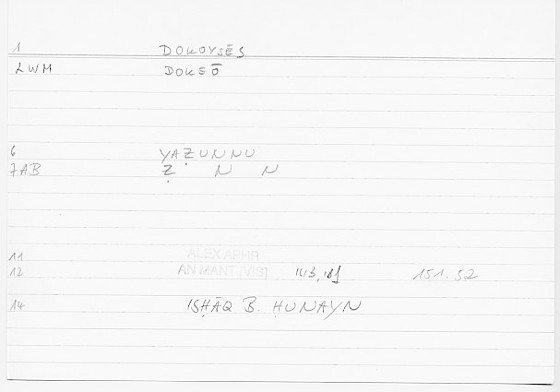 1 DOKOYSĒS
LWH DOKEŌ
6 YAẒUNNU
7AB Ẓ N N
11 ALEX.APHR
12 AN MANT [VIS] 151.52
14 ISḤĀQ B. ḤUNAYN